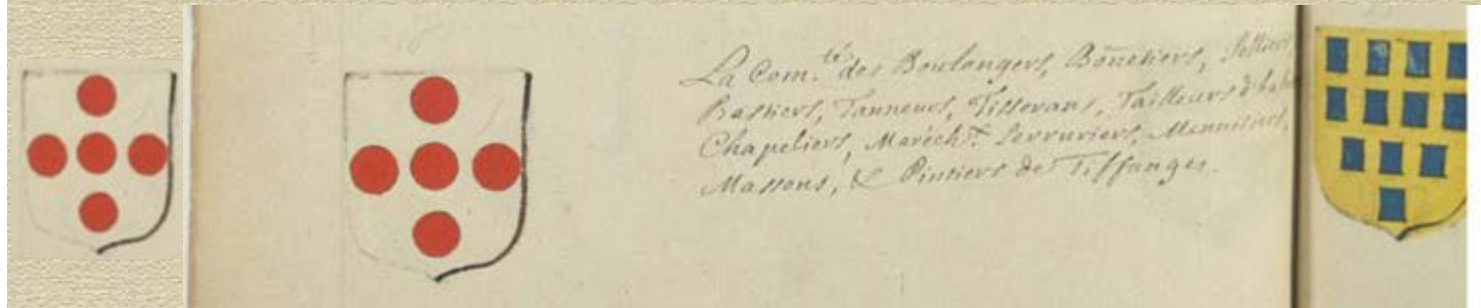 La Com.té des Boulangers, Bonetiers, Selliers
Bastiers, Tanneurs, Tisserans, Tailleurs d'habi
Chapeliers, Maréch.x Serruriers, Menuisiers,
Massons, & Pintiers de Tiffanges.